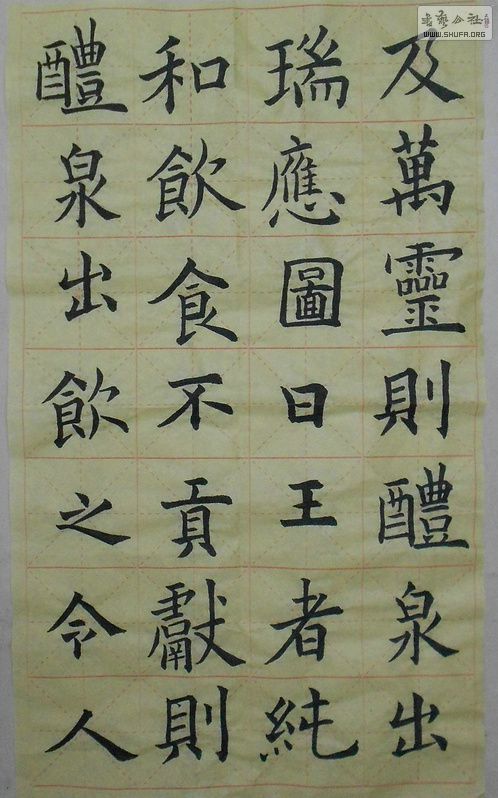 及萬靈則醴泉出
瑞應圖曰王者純
和飲食不貢獻則
醴泉出飲之令人
书艺公社
WWW.SHUFA.ORG